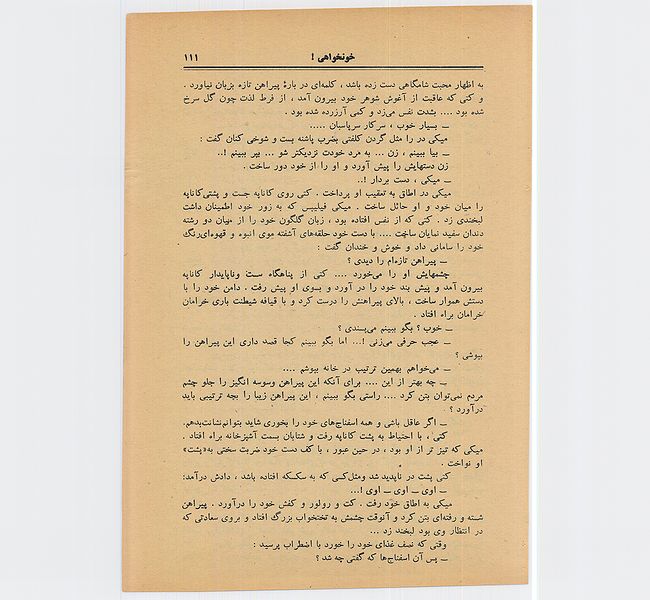 خونخواهی ! ۱۱۱
به اظهار محبت شامگاهی دست زده باشد ، کلمه‌ای در بارهٔ پیراهن تازه بزبان نیاورد .
و کتی که عاقبت از آغوش شوهر خود بیرون آمد ، از فرط لذت چون گل سرخ
شده بود .... بشدت نفس می‌زد و کمی آزرده شده بود .
ــ بسیار خوب ، سرکار سرپاسبان .....
میکی در را مثل گردن کلفتی بضرب پاشنه بست و شوخی کنان گفت :
ــ بیا ببینم ، زن ... به مرد خودت نزدیکتر شو ... بپر ببینم !..
زن دستهایش را پیش آورد و او را از خود دور ساخت .
ــ میکی ، دست بردار !..
میکی در اطاق به تعقیب او پرداخت . کتی روی کاناپه جست و پشتی‌کاناپه
را میان خود و او حائل ساخت . میکی فیلیپس که به زور خود اطمینان داشت
لبخندی زد . کتی که از نفس افتاده بود ، زبان گلگون خود را از میان دو رشته
دندان سفید نمایان ساخت .... با دست خود حلقه‌های آشفته موی انبوه و قهوه‌ای‌رنگ
خود را سامانی داد و خوش و خندان گفت :
ــ پیراهن تازه‌ام را دیدی ؟
چشمهایش او را می‌خورد .... کتی از پناهگاه سست وناپایدار کاناپه
بیرون آمد و پیش بند خود را در آورد و بسوی او پیش رفت . دامن خود را با
دستش هموار ساخت ، بالای پیراهنش را درست کرد و با قیافه شیطنت باری خرامان
خرامان براه افتاد .
ــ خوب ؟ بگو ببینم می‌پسندی ؟
ــ عجب حرفی می‌زنی !... اما بگو ببینم کجا قصد داری این پیراهن را
بپوشی ؟
ــ می‌خواهم بهمین ترتیب در خانه بپوشم ....
ــ چه بهتر از این .... برای آنکه این پیراهن وسوسه انگیز را جلو چشم
مردم نمی‌توان بتن کرد .... راستی بگو ببینم ، این پیراهن زیبا را بچه ترتیبی باید
درآورد ؟
ــ اگر عاقل باشی و همه اسفناج‌های خود را بخوری شاید بتوانم‌نشانت‌بدهم.
کتی ، با احتیاط به پشت کاناپه رفت و شتابان بسمت آشپزخانه براه افتاد .
میکی که تیز تر از او بود ، در حین عبور ، با کف دست خود ضربت سختی به«پشت»
او نواخت .
کتی پشت در ناپدید شد ومثل‌کسی که به سکسکه افتاده باشد ، دادش درآمد:
ــ اوی ــ اوی ــ اوی !...
میکی به اطاق خود رفت . کت و رولور و کفش خود را درآورد . پیراهن
شسته و رفته‌ای بتن کرد و آنوقت چشمش به تختخواب بزرگ افتاد و بروی سعادتی که
در انتظار وی بود لبخند زد ...
وقتی که نصف غذای خود را خورد با اضطراب پرسید :
ــ پس آن اسفناج‌ها که گفتی چه شد ؟